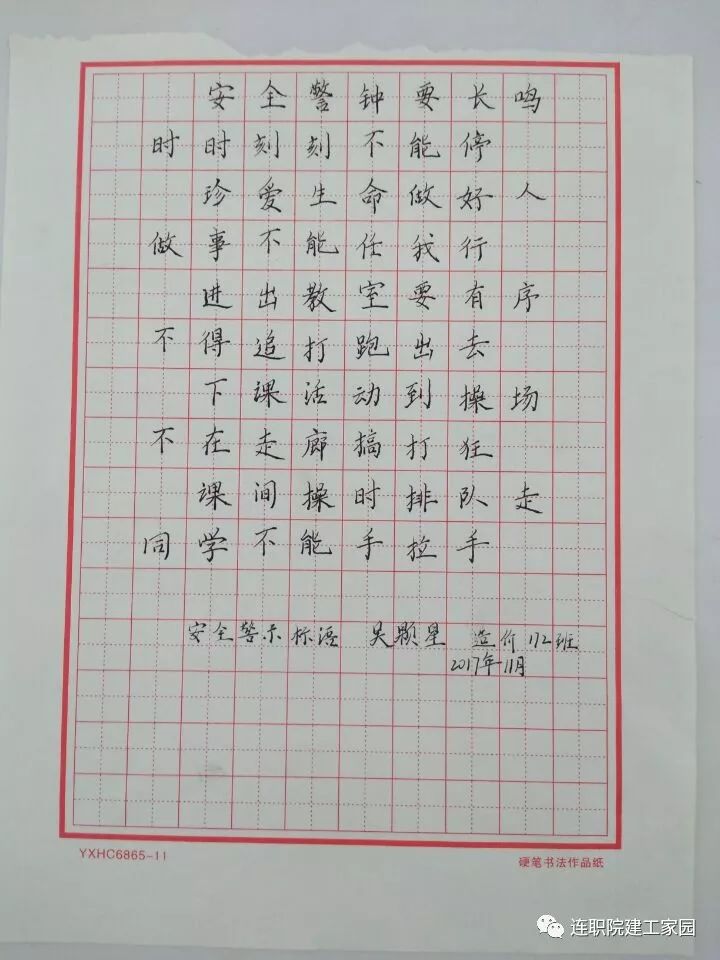 安全警钟要长鸣
时时刻刻不能停
珍爱生命做好人
做事不能任我行
进出教室要有序
不得追打跑出去
下课活动到操场
不在走廊搞打狂
课间操时排队走
同学不能手拉手
安全警示标语 吴颢星 造价172班
2017年11月
YXHC6865-11 硬笔书法作品纸
连职院建工家园